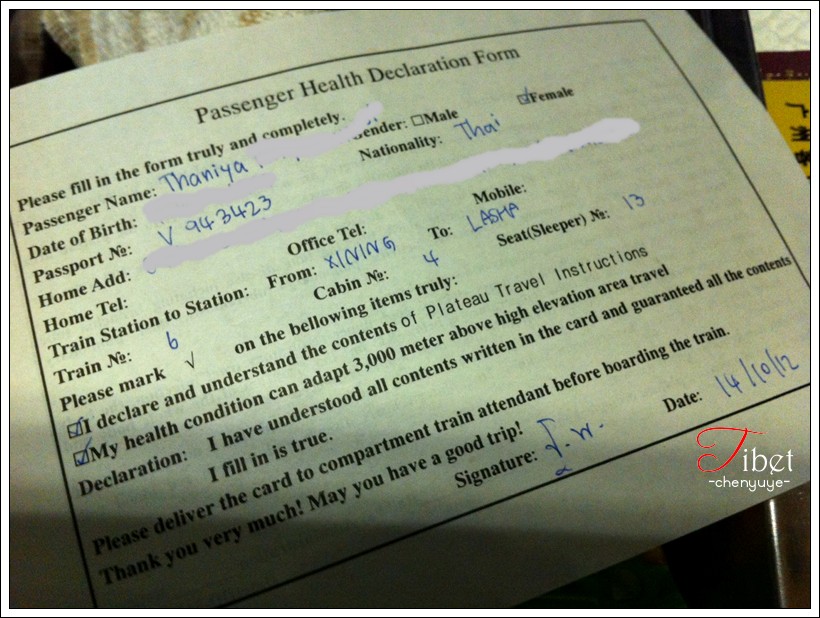 Passenger Health Declaration Form
Please fill in the form truly and completely.
Passenger Name: Thaniya Gender: ☐Male ☑Female
Date of Birth: Nationality: Thai
Passport №: V 943423
Home Add:
Home Tel: Office Tel: Mobile:
Train Station to Station: From: XINING To: LASHA
Train №: 6 Cabin №: 4 Seat(Sleeper) №: 13
Please mark √ on the bellowing items truly:
☑I declare and understand the contents of Plateau Travel Instructions
☑My health condition can adapt 3,000 meter above high elevation area travel
Declaration: I have understood all contents written in the card and guaranteed all the contents
I fill in is true.
Please deliver the card to compartment train attendant before boarding the train.
Thank you very much! May you have a good trip!
Signature: Date: 14/10/12
Tibet
-chenyuye-